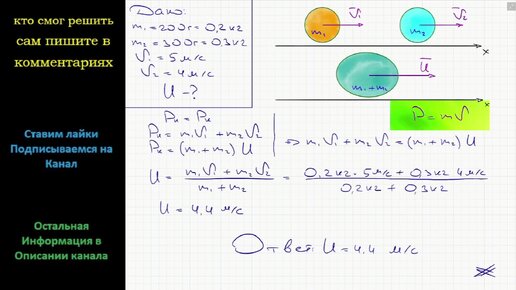 кто смог решить
сам пишите в
комментариях
Ставим лайки
Подписываемся на
Канал
Остальная
Информация в
Описании канала
Дано:
m₁=200г=0,2кг
m₂=300г=0,3кг
V₁=5м/с
V₂=4м/с
U-?
Pн=Pк
Pн=m₁V₁+m₂V₂
Pк=(m₁+m₂)U
⇒m₁V₁+m₂V₂=(m₁+m₂)U
U=(m₁V₁+m₂V₂)/(m₁+m₂)=(0,2кг·5м/с+0,3кг 4м/с)/(0,2кг+0,3кг)
U=4,4 м/с
Ответ: U=4,4 м/с
m₁ V₁ m₂ V₂
x
m₁+m₂ U
x
P=mV